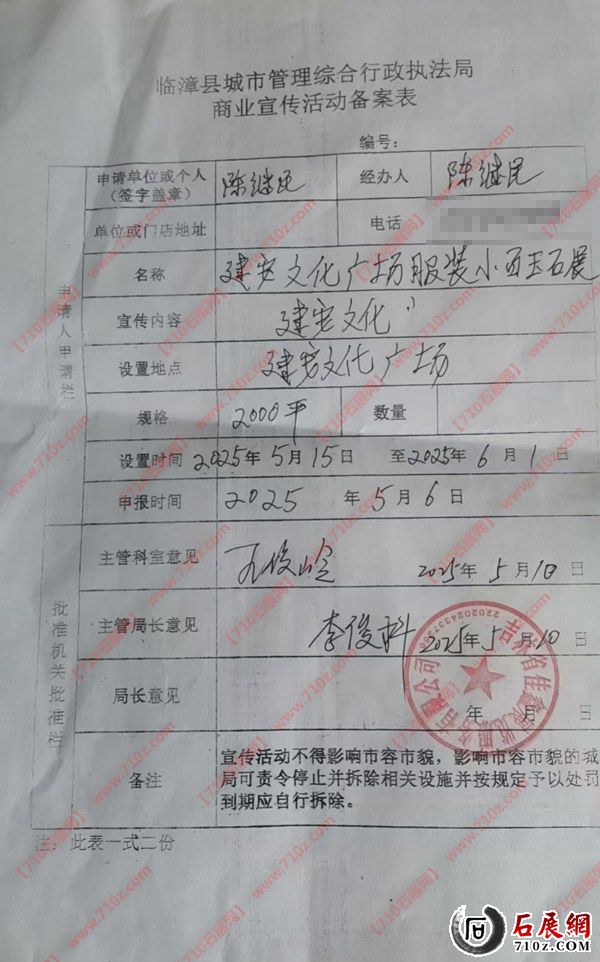 临漳县城市管理综合行政执法局
商业宣传活动备案表
编号：
申请人申请栏
申请单位或个人
（签字盖章）
陈继民
经办人
陈继民
单位或门店地址
电话
名称
建安文化广场服装小百玉石展
宣传内容
建安文化
设置地点
建安文化广场
规格
2000平
数量
设置时间
2025年5月15日 至2025年6月1日
申报时间
2025 年5月6日
批准机关批准栏
主管科室意见
2025年5月10日
主管局长意见
李俊科 2025年5月10日
局长意见
年 月 日
备注
宣传活动不得影响市容市貌，影响市容市貌的城
局可责令停止并拆除相关设施并按规定予以处罚
到期应自行拆除。
注：此表一式二份
【710石展网】www.710z.com
石展網
710z.com